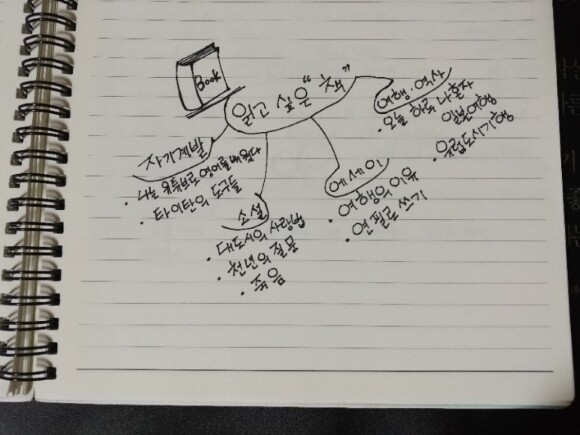 Book
읽고 싶은 "책"
자기계발
· 나는 유튜브로 영어를 배웠다
· 타이탄의 도구들
소설
· 대도시의 사랑법
· 천년의 질문
· 죽음
에세이
· 여행의 이유
· 연필로 쓰기
여행·역사
· 오늘 하루 나 혼자
일본여행
· 유럽도시기행